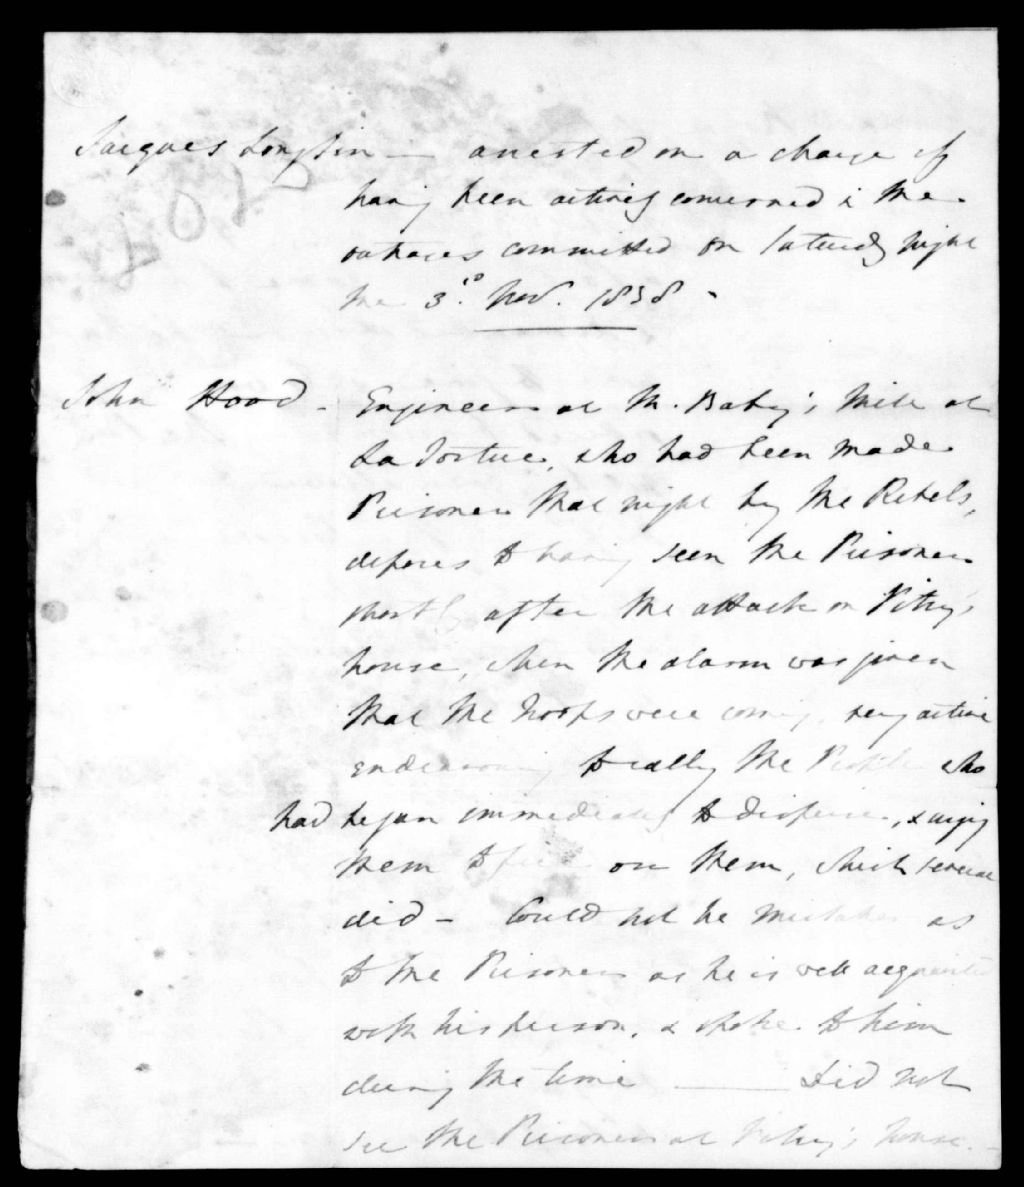 Jacques Longtin — arrested on a charge of
having been actively concerned in the
outrages committed on Saturday night
the 3rd. Novr. 1838 -
John Hood - Engineer at Mr. Baby's Mill at
La Tortue, who had been made
Prisoner that night by the Rebels,
deposes to having seen the Prisoner
shortly after the attack on Vitry's
house, when the alarm was given
that the Troops were coming, very active
endeavouring to rally the People who
had began immediately to disperse, urging
them to fire on them, which several
did - Could not be mistaken as
to the Prisoner as he is well acquainted
with his person, & spoke to him
during the time ——— Did not
see the Prisoner at Vitry's house -